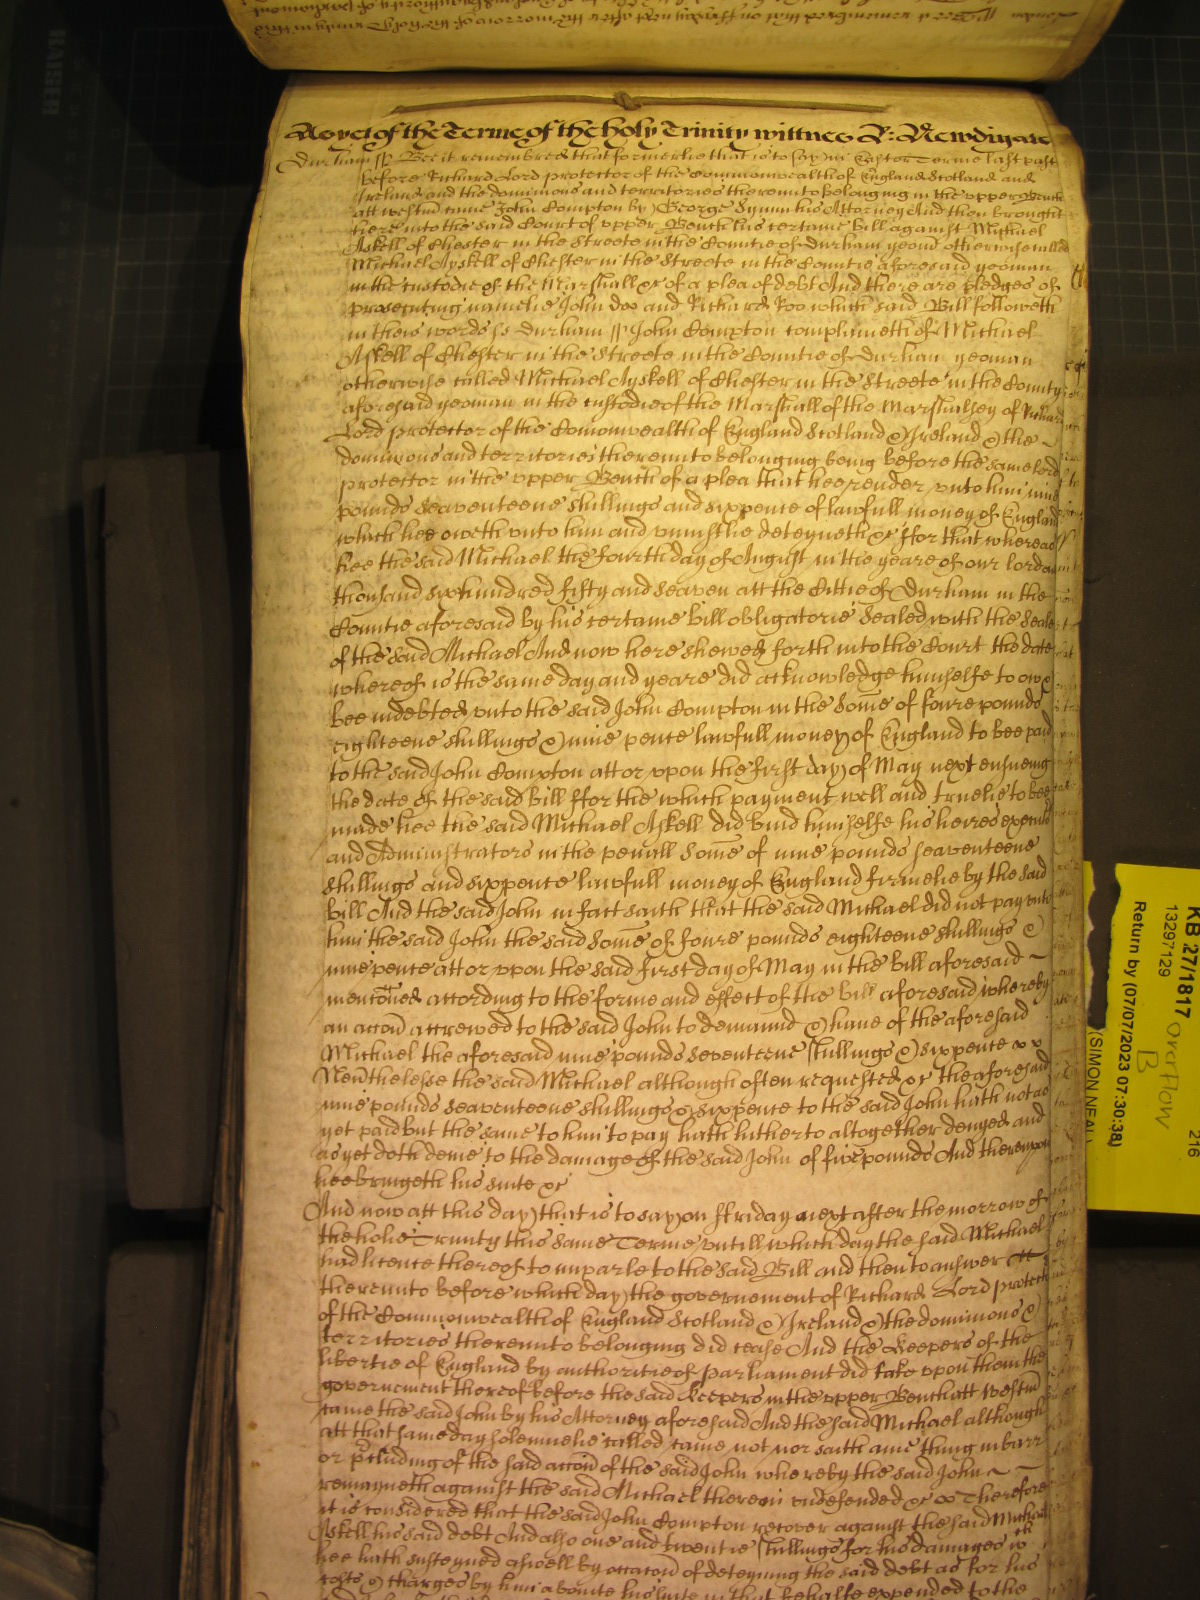 As yet of the Terme of the holy Trinity wittnes R: Newdigate
Durham ss Bee it remembred that formerlie that is to say in Easter Terme last past
before Richard Lord protector of the Commonwealth of England Scotland and
Ireland and the dominions and territories thereunto belonging in the upper Bench
att westm came John Compton by George Symm his Attorney And then brought
here into the said Court of upper Bench his certaine bill against Michael
Askell of Chester in the Streete in the Countie of durham yeom otherwise called
Michael Ayskell of Chester in the Streete in the Countie aforesaid yeoman
in the custodie of the Marshall &c of a plea of debt And there are pledges of
prosecuting namelie John doo and Richard Roo which said Bill followeth
in theis words ss durham ss John Compton complaineth of Michael
Askell of Chester in the Streete in the Countie of durham yeoman
otherwise called Michael Ayskell of Chester in the Streete in the County
aforesaid yeoman in the custodie of the Marshall of the Marshalsey of Richard
Lord protector of the Comonwealth of England Scotland & Ireland & the
dominions and territories thereunto belonging being before the same lord
protector in the upper Bench of a plea that hee render unto him nine
pounds seaventeene shillings and sixpence of lawfull money of England
which hee oweth unto him and uniustlie deteyneth &c ffor that whereas
hee the said Michael the fourth day of August in the yeare of our lord one
thousand six hundred fifty and seaven att the Cittie of Durham in the
Countie aforesaid by his certaine bill obligatorie Sealed with the Seale
of the said Michael And now here shewed forth into the Court the date
whereof is the same day and yeare did acknowledge himselfe to owe &
bee indebted unto the said John Compton in the Some of foure pounds
eighteene shillings & nine pence lawfull money of England to bee paid
to the said John Compton att or upon the first day of May next ensueing
the date of the said bill ffor the which payment well and truelie to bee
made hee the said Michael Askell did bind himselfe his heires executors
and Administrators in the penall Some of nine pounds seaventeene
shillings and sixpence lawfull money of England firmelie by the said
bill And the said John in fact saith that the said Michael did not pay unto
him the said John the said Some of foure pounds eighteene shillings &
nine pence att or upon the said first day of May in the bill aforesaid
mentioned according to the forme and effect of the bill aforesaid whereby
an accon accrewed to the said John to demaund & have of the aforesaid
Michael the aforesaid nine pounds seventeene shillings & sixpence
Neuthelesse the said Michael although often requested &c the aforesaid
nine pounds seaventeene shillings & sixpence to the said John hath not as
yet paid but the same to him to pay hath hitherto altogether denyed and
as yet doth denie to the damage of the said John of five pounds And thereupon
hee bringeth his suite &c
And now att this day that is to say on ffriday next after the morrow of
the holie Trinity this same Terme untill which day the said Michael
had licence thereof to imparle to the said Bill and then to answer
thereunto before which day the governement of Richard Lord protector
of the Commonwealth of England Scotland & Ireland & the dominions &
territories thereunto belonging did cease And the Keepers of the
libertie of England by authoritie of parliament did take upon them the
governement thereof before the said Keepers in the upper Bench att Westm
came the said John by his Attorney aforesaid And the said Michael although
att that same day solemnelie called came not nor saith anie thing in barr
or pcluding of the said accon of the said John whereby the said John
remayneth against the said Michael therein undefended &c Therefore
it is considered that the said John Compton recover against the said Michael
Askell his said debt And also one and twentie shillings for his damages wch
hee hath susteyned aswell by occacon of deteyning the said debt as for his
costs & charges by him aboute his suite in that behalfe expended to the
KB 27/1817
13297129
Return by (07/07/2023 07:30:38)
(SIMON NEAL)
216
overflow
B
KAISER